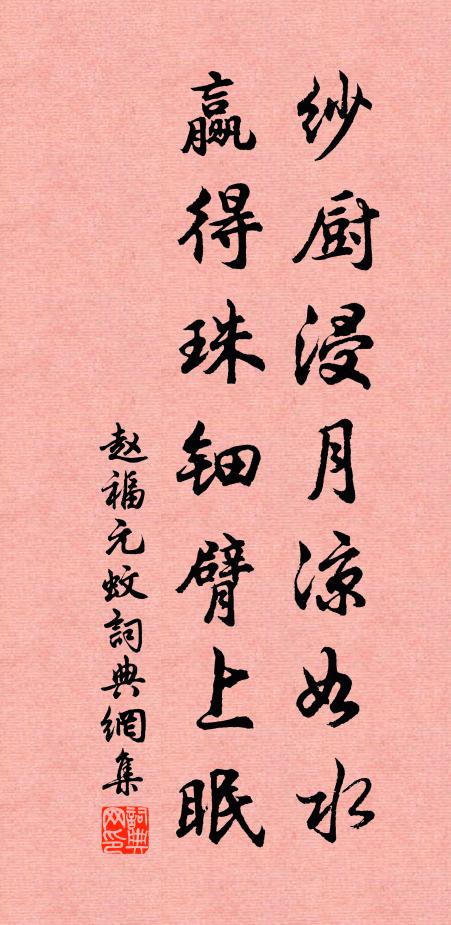 纱厨浸月凉如水
赢得珠钿臂上眠
赵福元蚊詞典網集
詞典网印